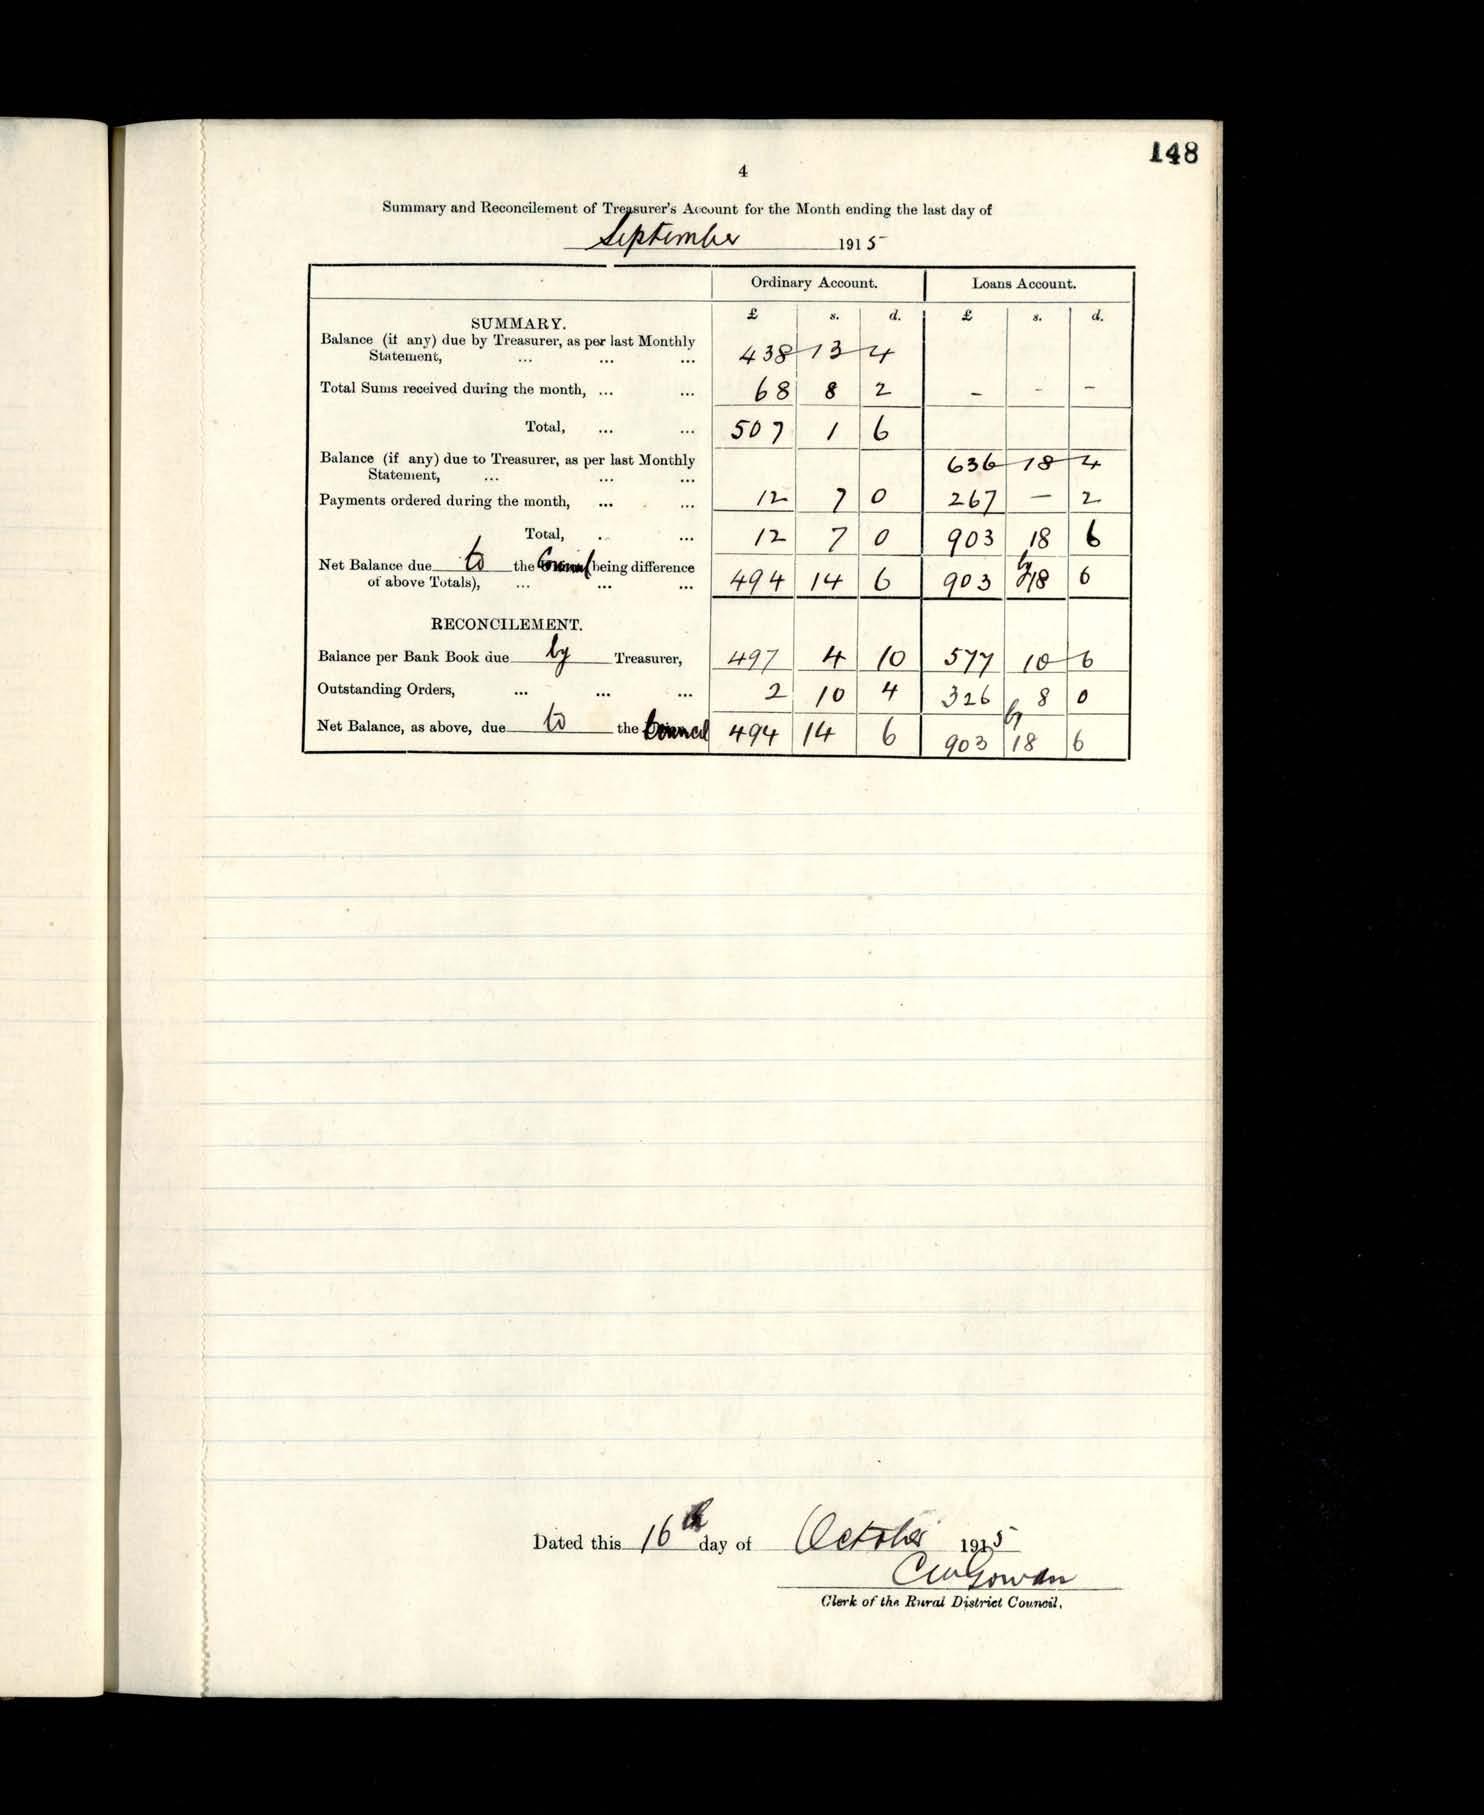 148
4
Summary and Reconcilement of Treasurer's Account for the Month ending the last day of
September 1915
Ordinary Account. Loans Account.
£ s. d. £ s. d.
SUMMARY.
Balance (if any) due by Treasurer, as per last Monthly
Statement, ... ... ... 438 13 4
Total Sums received during the month, ... ... 68 8 2 - - -
Total, ... ... 507 1 6
Balance (if any) due to Treasurer, as per last Monthly
Statement, ... ... ... 636 18 4
Payments ordered during the month, ... ... 12 7 0 267 — 2
Total, . ... 12 7 0 903 18 6
Net Balance due to the Council (being difference
of above Totals), ... ... ... 494 14 6 903 by 18 6
RECONCILEMENT.
Balance per Bank Book due by Treasurer, 497 4 10 577 10 6
Outstanding Orders, ... ... ... 2 10 4 326 8 0
Net Balance, as above, due to the Council 494 14 6 903 by 18 6
Dated this 16th day of October 1915
Gowan
Clerk of the Rural District Council.